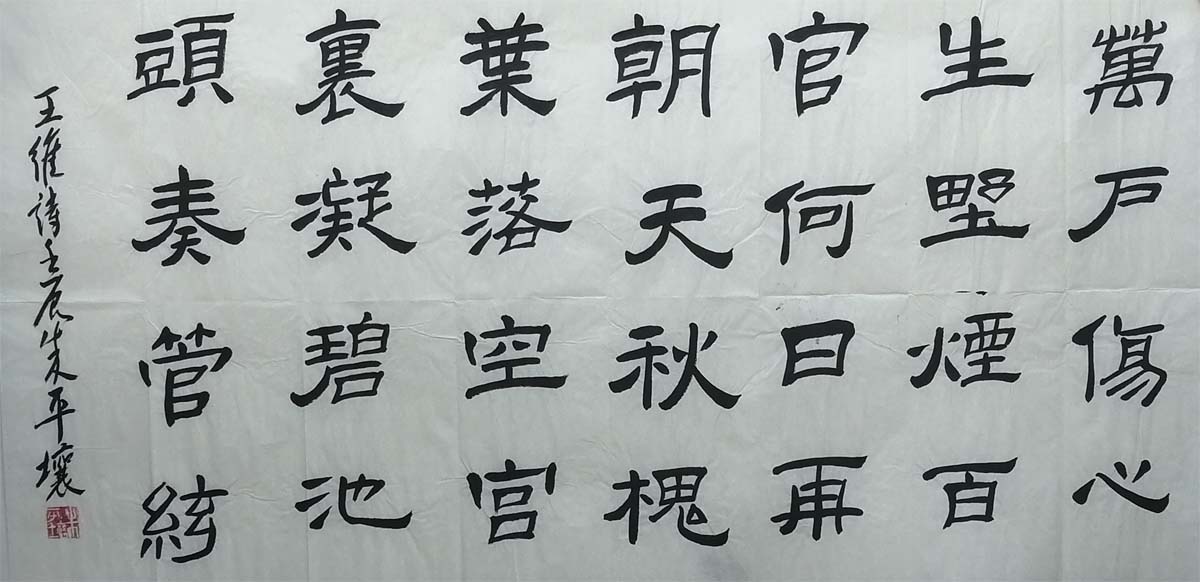 萬戶傷心
生野煙百
官何日再
朝天秋槐
葉落空宮
裏凝碧池
頭奏管絃
王維詩壬辰朱平壤